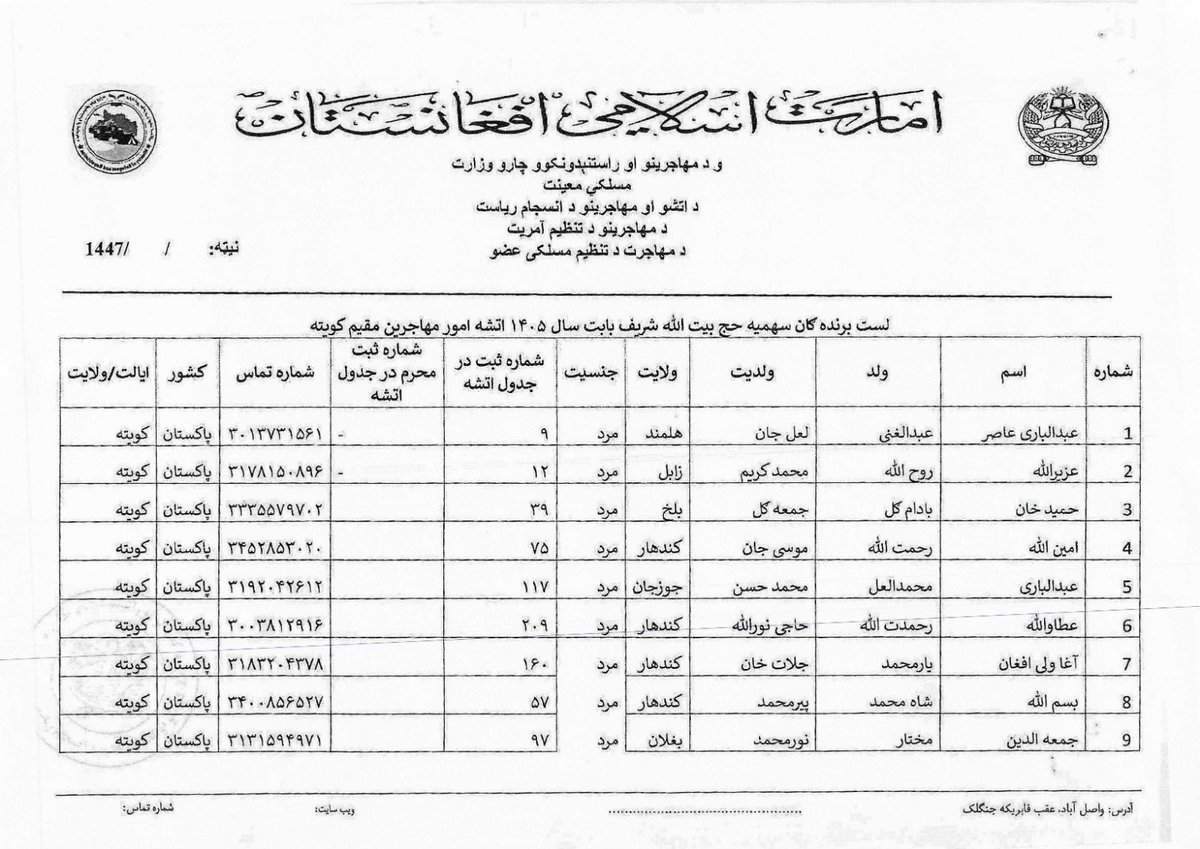 امارت اسلامی افغانستان
و د مهاجرینو او راستنېدونکوو چارو وزارت
مسلکي معینت
د اتشو او مهاجرینو د انسجام ریاست
د مهاجرینو د تنظیم آمریت
د مهاجرت د تنظیم مسلکی عضو
نیټه: / /1447
لست برنده گان سهمیه حج بیت الله شریف بابت سال ۱۴۰۵ اتشه امور مهاجرین مقیم کویته
شماره اسم ولد ولدیت ولایت جنسیت شماره ثبت در جدول اتشه شماره ثبت محرم در جدول اتشه شماره تماس کشور ایالت/ولایت
1 عبدالباری عاصر عبدالغنی لعل جان هلمند مرد ۹ - ۳۰۱۳۷۳۱۵۶۱ پاکستان کویته
2 عزیرالله روح الله محمد کریم زابل مرد ۱۲ - ۳۱۷۸۱۵۰۸۹۶ پاکستان کویته
3 حمید خان بادام گل جمعه گل بلخ مرد ۳۹ ۳۳۳۵۵۷۹۷۰۲ پاکستان کویته
4 امین الله رحمت الله موسی جان کندهار مرد ۷۵ ۳۴۵۲۸۵۳۰۲۰ پاکستان کویته
5 عبدالباری محمدالعل محمد حسن جوزجان مرد ۱۱۷ ۳۱۹۲۰۴۲۶۱۲ پاکستان کویته
6 عطاوالله رحمدت الله حاجی نورالله کندهار مرد ۲۰۹ ۳۰۰۳۸۱۲۹۱۶ پاکستان کویته
7 آغا ولی افغان یارمحمد جلات خان کندهار مرد ۱۶۰ ۳۱۸۳۲۰۴۳۷۸ پاکستان کویته
8 بسم الله شاه محمد پیرمحمد کندهار مرد ۵۷ ۳۴۰۰۸۵۶۵۲۷ پاکستان کویته
9 جمعه الدین مختار نورمحمد بغلان مرد ۹۷ ۳۱۳۱۵۹۴۹۷۱ پاکستان کویته
آدرس: واصل آباد، عقب فابریکه جنگلک ........................................ ویب سایت: شماره تماس: